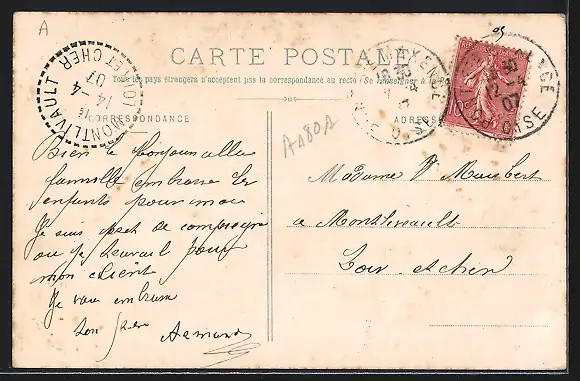 A
95
CARTE POSTALE
Tous les pays étrangers n'acceptent pas la correspondance au recto (Se renseigner à la Po
CORRESPONDANCE
ADRESSE
MONTLIVAULT
LOIR ET CHER
14 - 4
07
MAXENCE
OISE
30
12 - 4
07
OISE
A180A
Bien le bonjour a la
famille embrasse les
enfants pour moi
Je suis
ou je travail pour
mon client
Je vous embrasse
ton frère Armand
Madame Maubert
a Montlivault
Loir et cher